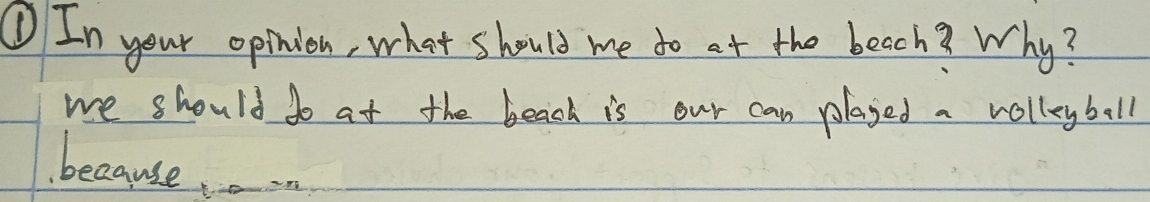 ① In your opinion, what should me do at the beach? Why?
we should do at the beach is our can played a volleyball
because